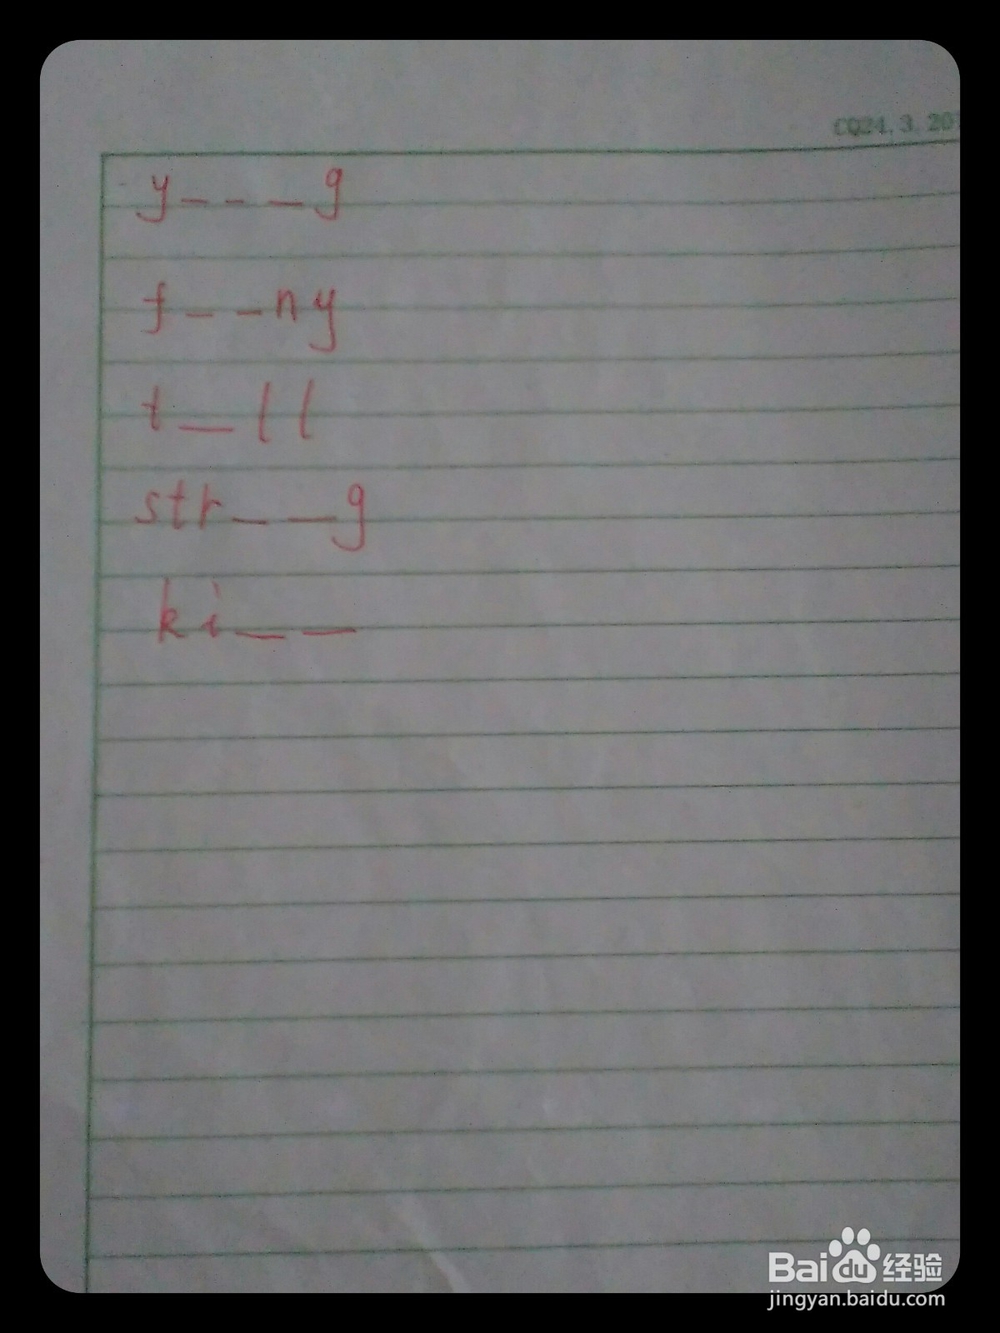 CQ24.3.20
y _ _ _ g
f _ _ n y
t _ l l
str _ _ g
ki _ _
Baidu 经验
jingyan.baidu.com